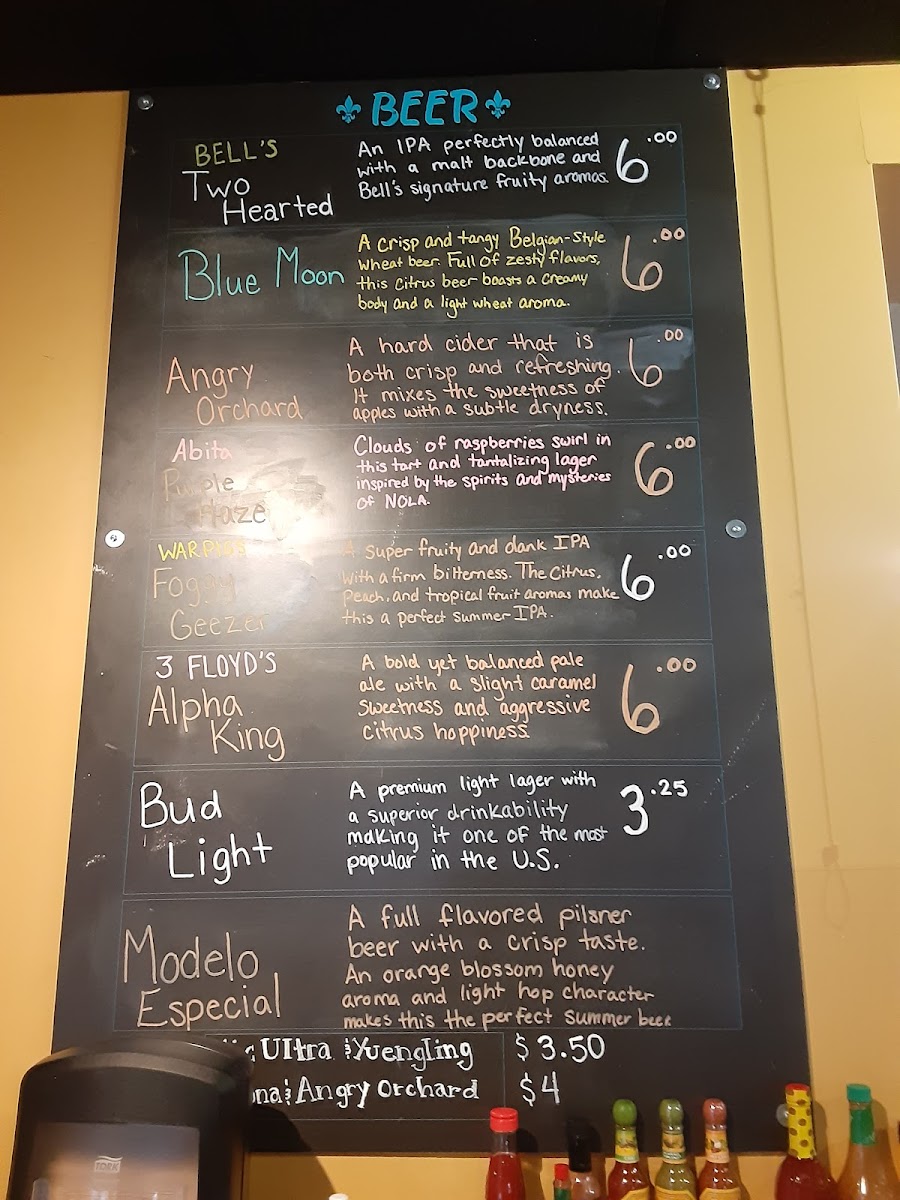 BEER
BELL'S
Two
Hearted
An IPA perfectly balanced
with a malt backbone and
Bell's signature fruity aromas.
6.00
Blue Moon
A crisp and tangy Belgian-Style
wheat beer. Full of zesty flavors,
this citrus beer boasts a creamy
body and a light wheat aroma.
6.00
Angry
Orchard
A hard cider that is
both crisp and refreshing.
It mixes the sweetness of
apples with a subtle dryness.
6.00
Abita
Purple
Haze
Clouds of raspberries swirl in
this tart and tantalizing lager
inspired by the spirits and mysteries
of NOLA.
6.00
WARPIGS
Foggy
Geezer
A super fruity and dank IPA
with a firm bitterness. The Citrus,
Peach, and tropical fruit aromas make
this a perfect summer IPA.
6.00
3 FLOYD'S
Alpha
King
A bold yet balanced pale
ale with a slight caramel
sweetness and aggressive
citrus hoppiness.
6.00
Bud
Light
A premium light lager with
a superior drinkability
making it one of the most
popular in the U.S.
3.25
Modelo
Especial
A full flavored pilsner
beer with a crisp taste.
An orange blossom honey
aroma and light hop character
makes this the perfect summer beer
Ultra & Yuengling $3.50
& Angry Orchard $4
TORK